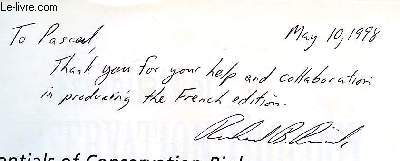 Le-livre.com
To Pascal,
May 10, 1998
Thank you for your help and collaboration
in producing the French edition.
Richard B. Primack
entials of Conservation Biol